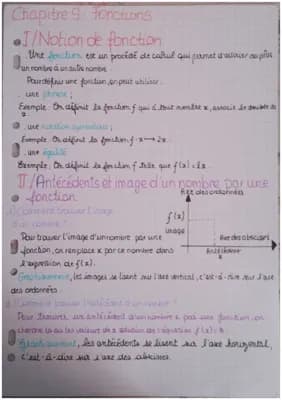 Chapitre 9 Fonctions
I/Notion de fonction
Une fonction est un procédé de calcul qui permet d'associer
un nombre à un autre nombre
Pour définir une fonction, on peut utiliser:
. une phrase;
Exemple. On définit la fonction f qui à tout nombre x, associe le double de
x.
. une notation symbolique;
Exemple: On définit la fonction f: x → 2x.
. une égalité
Exemple: On définit la fonction f telle que f(x)=2x
II/Antécédents et image d'un nombre par une
fonction.
Axe des ordonnées
f(x)
image
Axe des abscisses
Antécédent
x
1) Comment trouver l'image
d'un nombre?
Pour trouver l'image d'un nombre par une
fonction, on remplace x par ce nombre dans
l'expression de f(x).
Graphiquement, les images se lisent sur l'axe vertical, c'est-à-dire sur l'axe
des ordonnées.
Comment trouver l'antécédent d'un nombre?
Pour trouver un antécédent d'un nombre par une fonction, on
cherche la ou les valeurs de x solution de l'équation f(x)=
Graphiquement, les antécédents se lisent sur l'axe horizontal,
c'est-à-dire sur l'axe des abscisses.